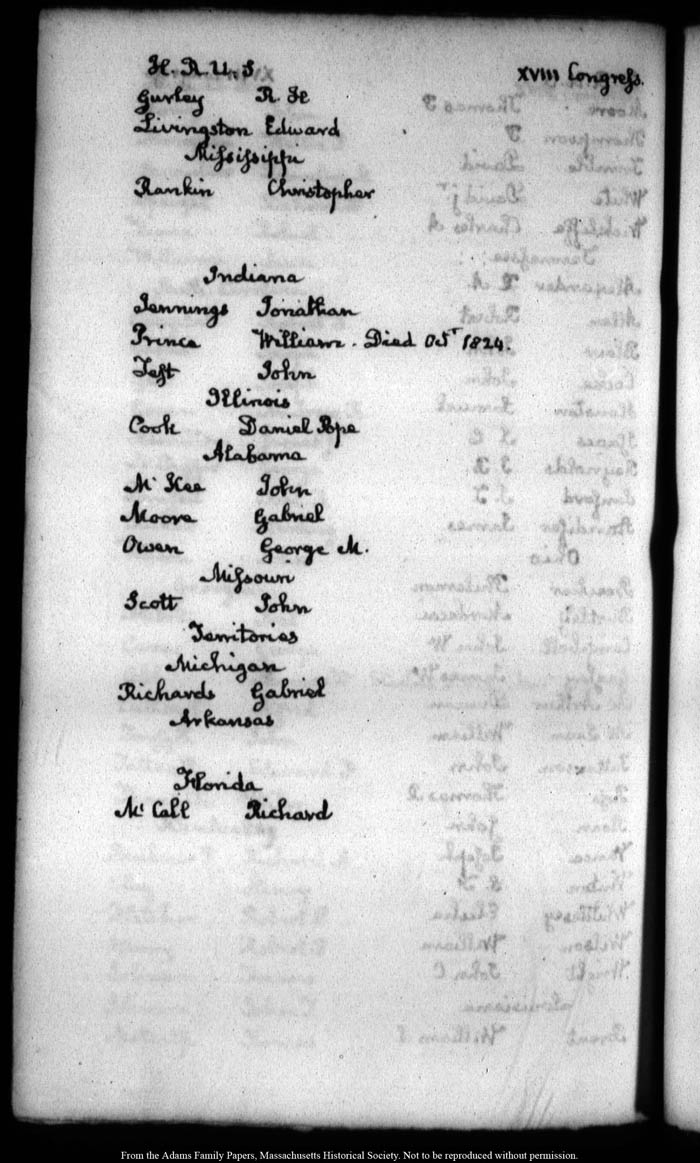 H. R. U. S XVIII Congress.
Gurley R. H
Livingston Edward
Mississippi
Rankin Christopher
Indiana
Jennings Jonathan
Prince William. Died Octr 1824.
Test John
Illinois
Cook Daniel Pope
Alabama
Mc Kee John
Moore Gabriel
Owen George M.
Missouri
Scott John
Territories
Michigan
Richards Gabriel
Arkansas
Florida
Mc Call Richard
From the Adams Family Papers, Massachusetts Historical Society. Not to be reproduced without permission.